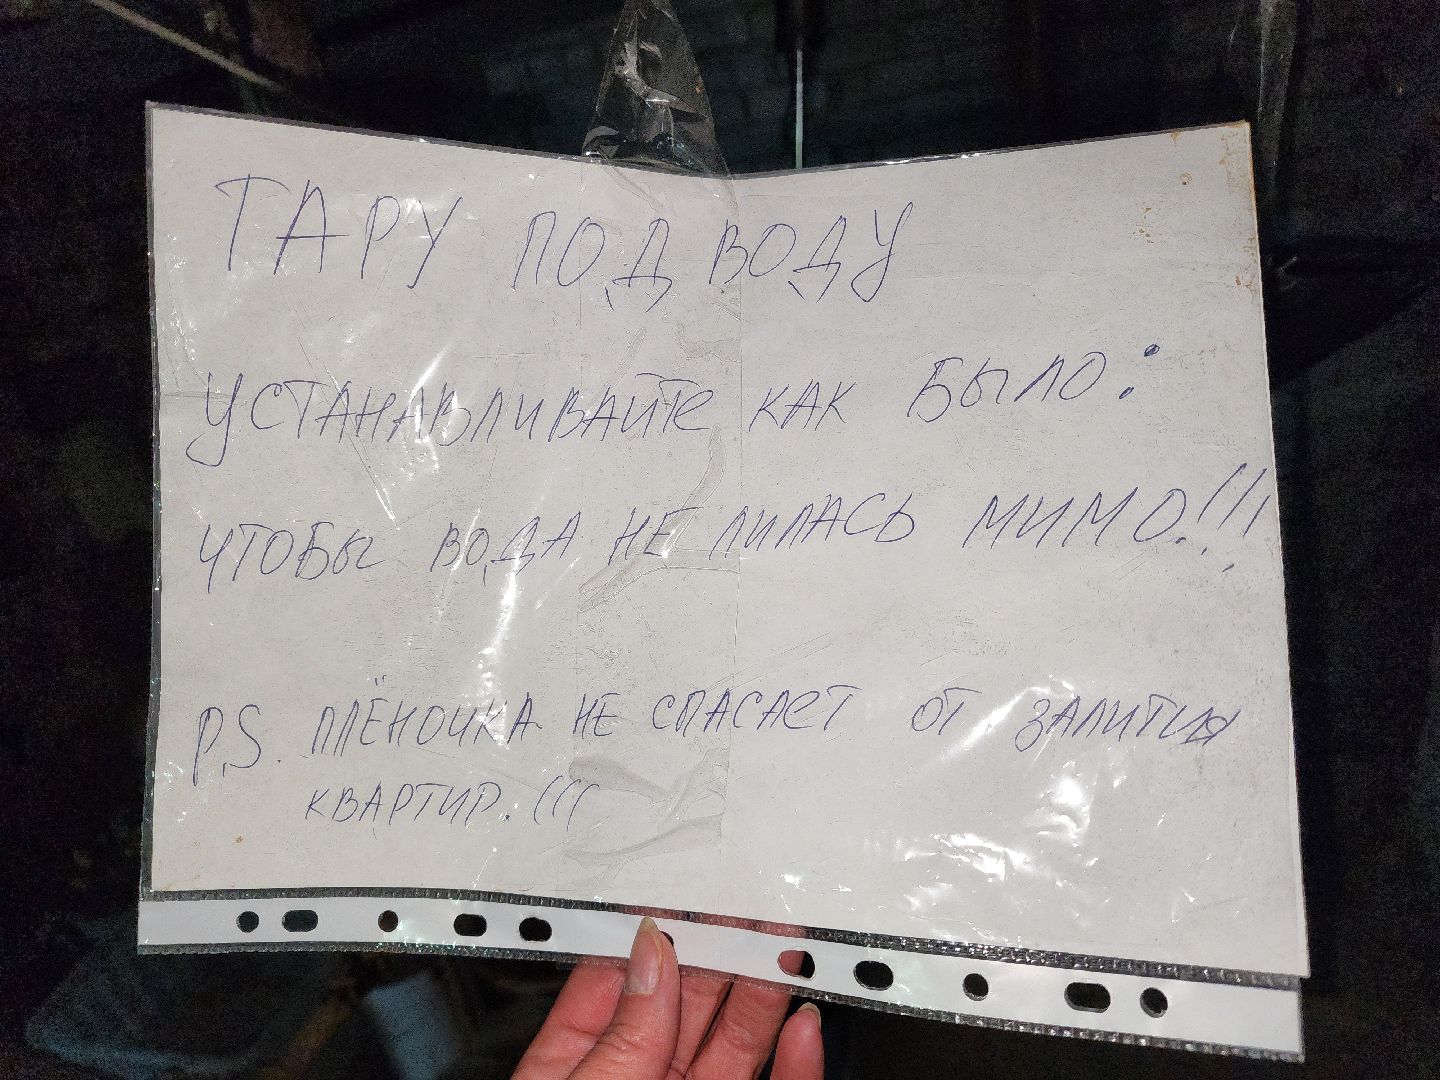 ТАРУ ПОД ВОДУ
УСТАНАВЛИВАЙТЕ КАК БЫЛО:
ЧТОБЫ ВОДА НЕ ЛИЛАСЬ МИМО!!!
P.S. ПЛЁНОЧКА НЕ СПАСАЕТ ОТ ЗАЛИТИЯ
КВАРТИР. (((